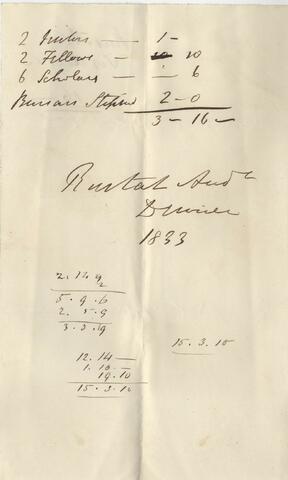 2 Visitors — 1 –
2 Fellows – 10 10
6 Scholars – – 6
Bursars Stipend 2 – 0
3 – 16 –
Rustat Audt
Dinner
1833
2. 14 9
2
5. 9. 6
2. 5. 9
3. 3. 9
15. 3. 10
12. 14 —
1. 10 —
19. 10
15. 3. 10